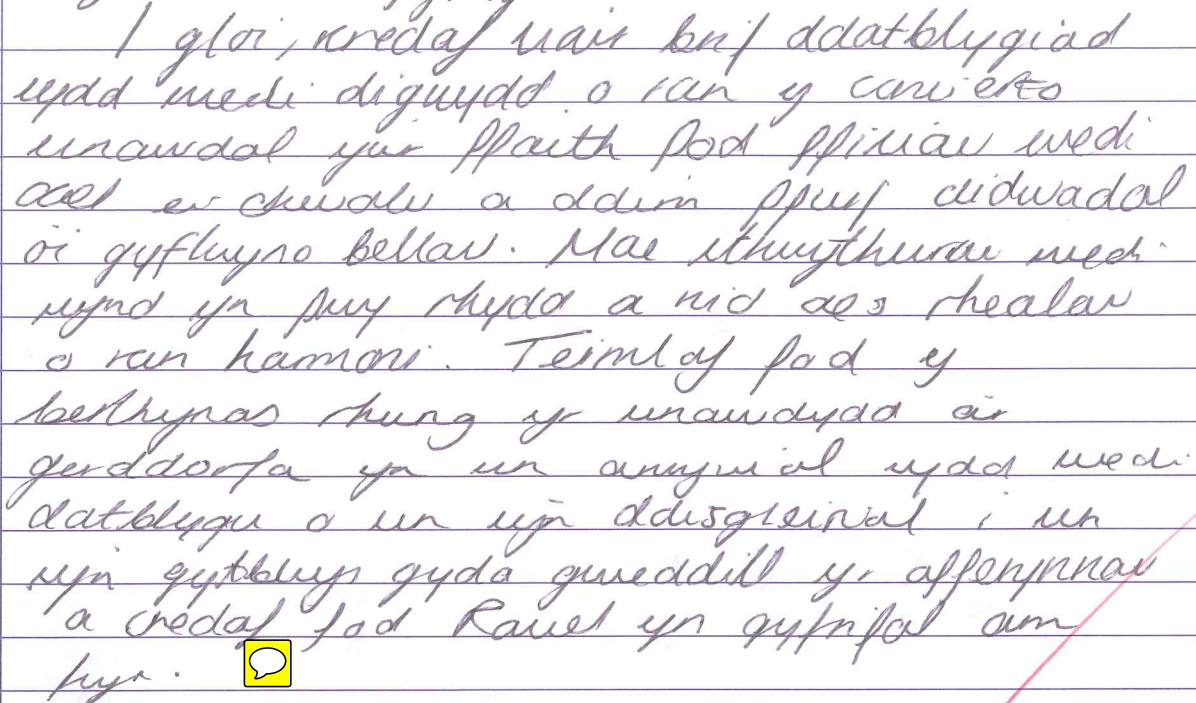 I gloi, credaf mair brif ddatblygiad
sydd wedi digwydd o ran y concerto
unawdol yw'r ffaith fod ffiniau wedi
cael eu chwalu a ddim ffurf didwadol
o'i gyflwyno bellau. Mae strwythurau wedi
mynd yn fwy rhydd a nid oes rheolau
o ran harmoni. Teimlaf fod y
berthynas rhung yr unawdydd a'r
gerddorfa yn un annwiol sydd wedi
datblygu o un sy'n ddisgleiriol i un
sy'n gytbwys gyda gweddill yr offerynnau
a credaf fod Ravel yn gyfrifol am
hyn.